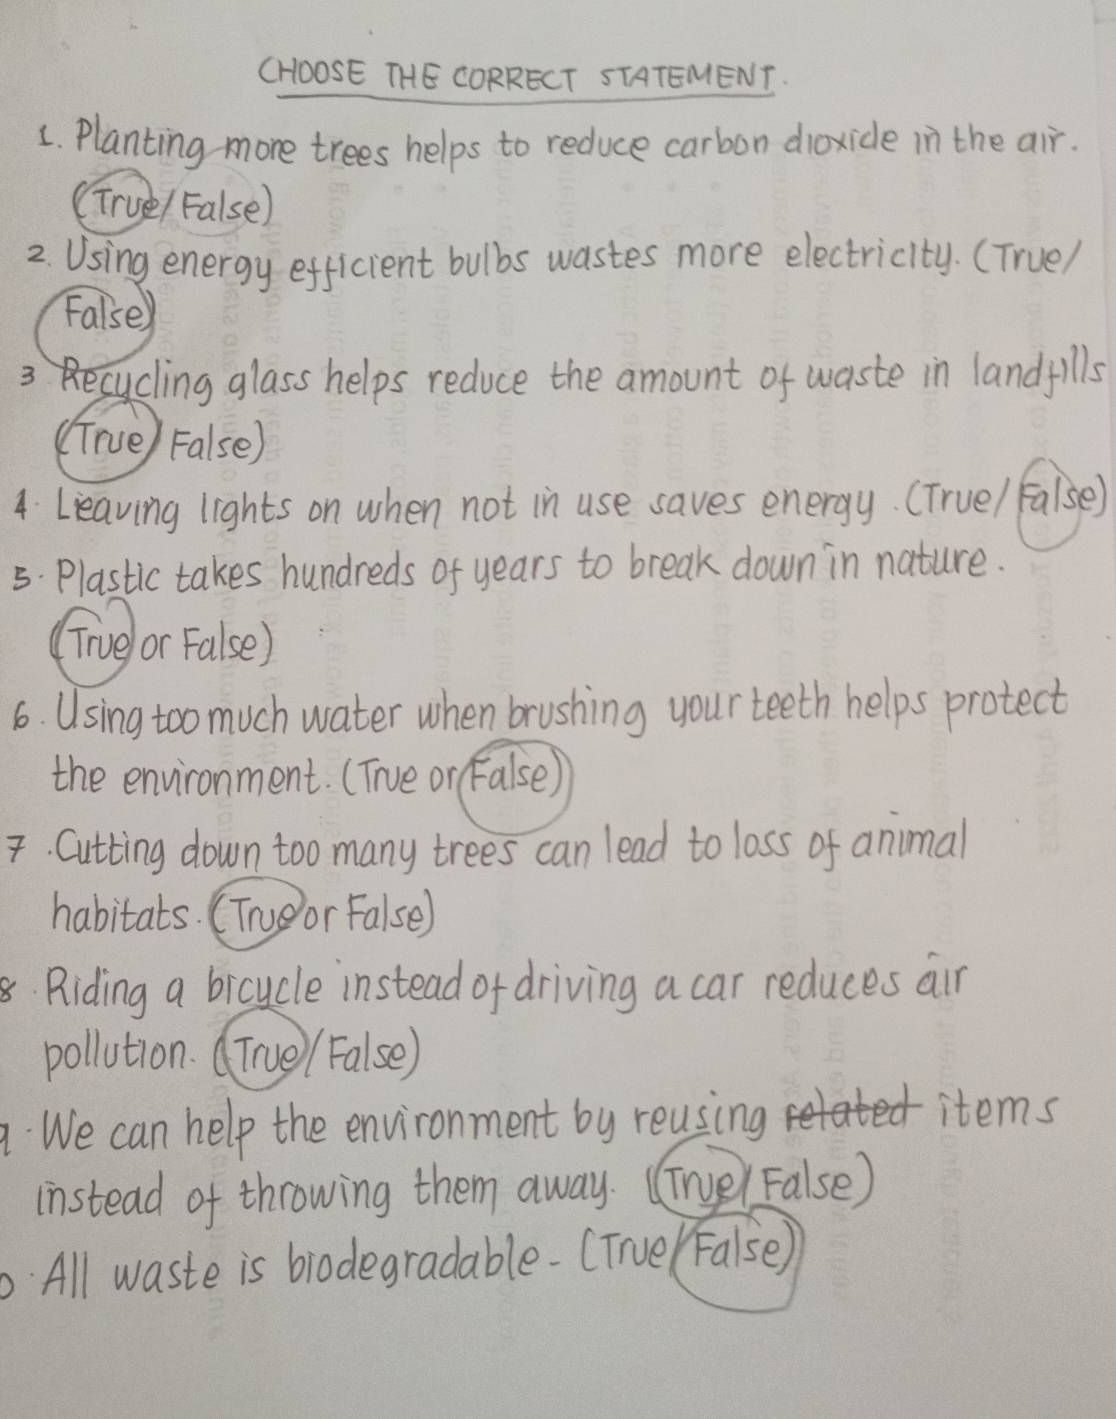 CHOOSE THE CORRECT STATEMENT.
1. Planting more trees helps to reduce carbon dioxide in the air.
(True/False)
2. Using energy efficient bulbs wastes more electricity. (True/
False)
3 Recycling glass helps reduce the amount of waste in landfills
(True/False)
4. Leaving lights on when not in use saves energy. (True/False)
5. Plastic takes hundreds of years to break down in nature.
(True or False)
6. Using too much water when brushing your teeth helps protect
the environment. (True or False)
7. Cutting down too many trees can lead to loss of animal
habitats. (True or False)
8. Riding a bicycle instead of driving a car reduces air
pollution. (True/False)
9. We can help the environment by reusing related items
instead of throwing them away. (True/False)
0. All waste is biodegradable. (True/False)